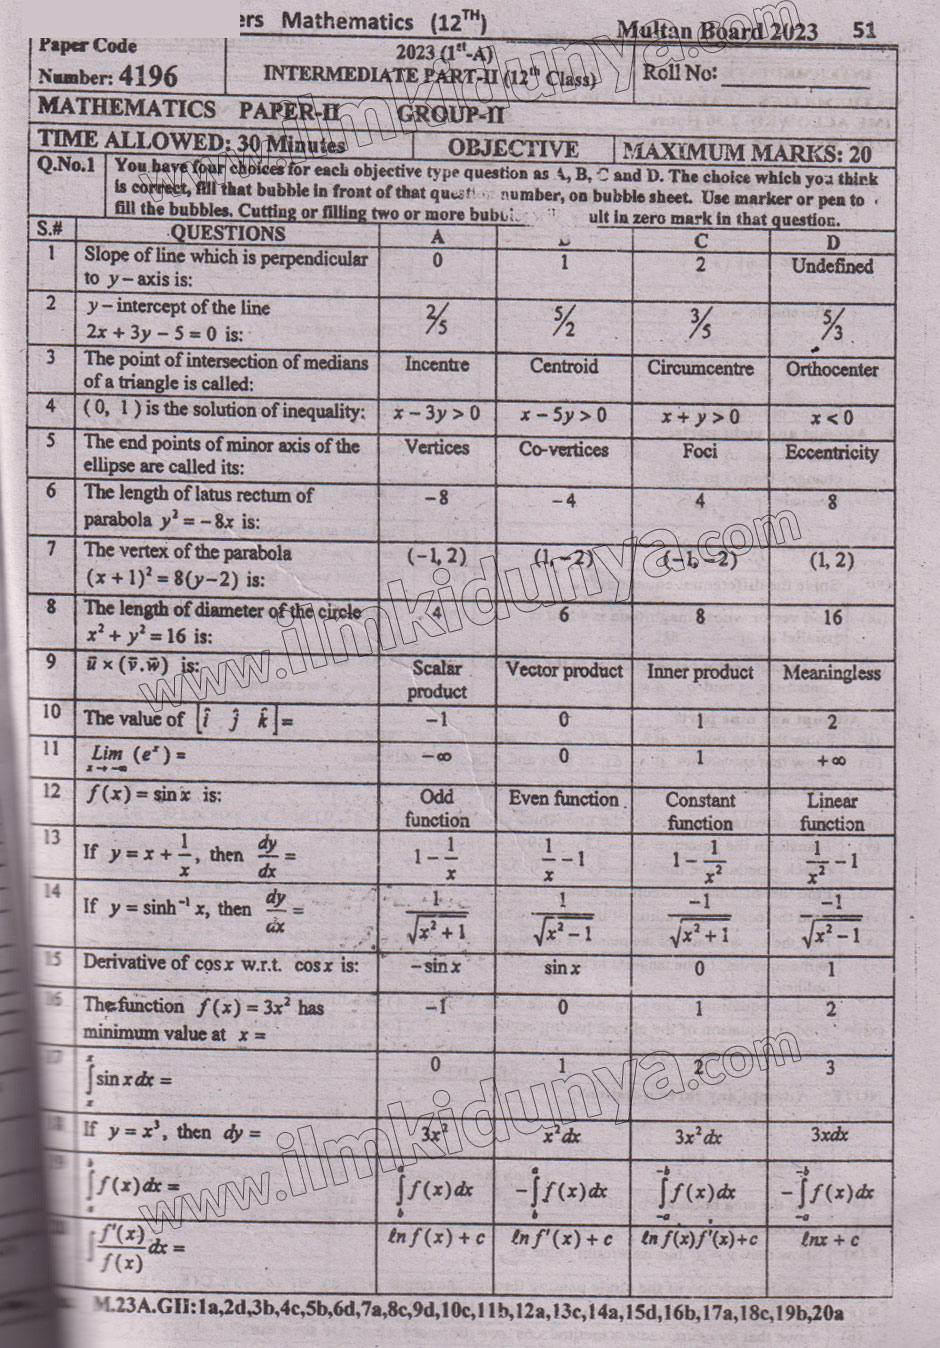 ers Mathematics (12TH) Multan Board 2023 51
Paper Code
Number: 4196
2023 (1st-A)
INTERMEDIATE PART-II (12th Class)
Roll No:
MATHEMATICS PAPER-II GROUP-II
TIME ALLOWED: 30 Minutes OBJECTIVE MAXIMUM MARKS: 20
Q.No.1 You have four choices for each objective type question as A, B, C and D. The choice which you think
is correct, fill that bubble in front of that question number, on bubble sheet. Use marker or pen to
fill the bubbles. Cutting or filling two or more bubbles will result in zero mark in that question.
S.# QUESTIONS A B C D
1 Slope of line which is perpendicular to y – axis is: 0 1 2 Undefined
2 y – intercept of the line 2x + 3y – 5 = 0 is: 2/5 5/2 3/5 5/3
3 The point of intersection of medians of a triangle is called: Incentre Centroid Circumcentre Orthocenter
4 (0, 1) is the solution of inequality: x – 3y > 0 x – 5y > 0 x + y > 0 x < 0
5 The end points of minor axis of the ellipse are called its: Vertices Co-vertices Foci Eccentricity
6 The length of latus rectum of parabola y² = –8x is: –8 –4 4 8
7 The vertex of the parabola (x+1)² = 8(y–2) is: (–1, 2) (1, –2) (–1, –2) (1, 2)
8 The length of diameter of the circle x² + y² = 16 is: 4 6 8 16
9 u⃗ × (v⃗.w⃗) is: Scalar product Vector product Inner product Meaningless
10 The value of [î ĵ k̂] = –1 0 1 2
11 Lim x→–∞ (eˣ) = –∞ 0 1 +∞
12 f(x) = sin x is: Odd function Even function Constant function Linear function
13 If y = x + 1/x, then dy/dx = 1 – 1/x 1/x – 1 1 – 1/x² 1/x² – 1
14 If y = sinh⁻¹ x, then dy/dx = 1/√(x²+1) 1/√(x²–1) –1/√(x²+1) –1/√(x²–1)
15 Derivative of cos x w.r.t. cos x is: –sin x sin x 0 1
16 The function f(x) = 3x² has minimum value at x = –1 0 1 2
17 ∫ₓˣ sin x dx = 0 1 2 3
18 If y = x³, then dy = 3x² x² dx 3x² dx 3xdx
19 ∫ₐᵇ f(x) dx = ∫ᵇᵃ f(x) dx –∫ᵇᵃ f(x) dx ∫₋ₐ⁻ᵇ f(x) dx –∫₋ₐ⁻ᵇ f(x) dx
∫ f'(x)/f(x) dx = ln f(x) + c ln f'(x) + c ln f(x)f'(x)+c lnx + c
M.23A.GII:1a,2d,3b,4c,5b,6d,7a,8c,9d,10c,11b,12a,13c,14a,15d,16b,17a,18c,19b,20a
www.ilmkidunya.com
www.ilmkidunya.com
www.ilmkidunya.com